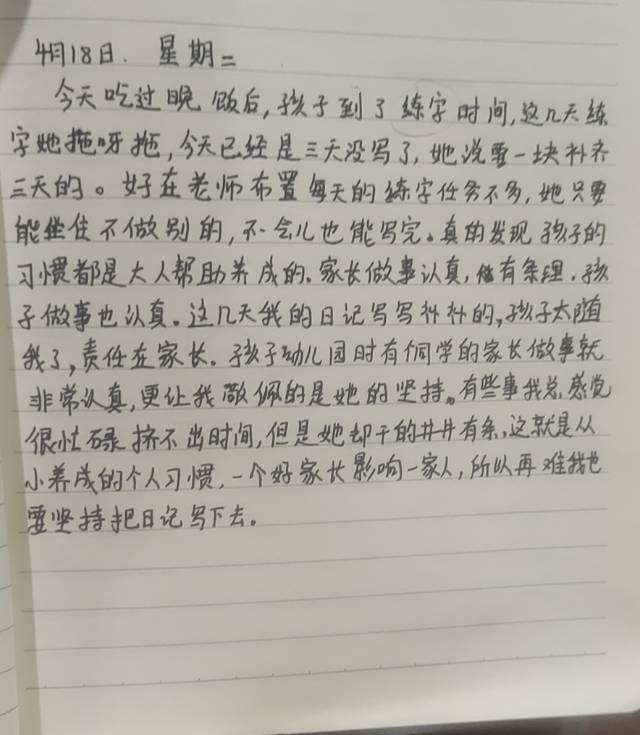 4月18日. 星期二
今天吃过晚饭后,孩子到了练字时间,这几天练
字她拖呀拖,今天已经是三天没写了,她说要一块补齐
三天的。好在老师布置每天的练字任务不多,她只要
能坐住不做别的,不一会儿也能写完。真的发现孩子的
习惯都是大人帮助养成的.家长做事认真,做有条理,孩
子做事也认真。这几天我的日记写写补补的,孩子太随
我了,责任在家长。孩子幼儿园时有个同学的家长做事就
非常认真,更让我敬佩的是她的坚持。有些事我总感觉
很忙碌挤不出时间,但是她却干的井井有条,这就是从
小养成的个人习惯,一个好家长影响一家人,所以再难我也
要坚持把日记写下去。